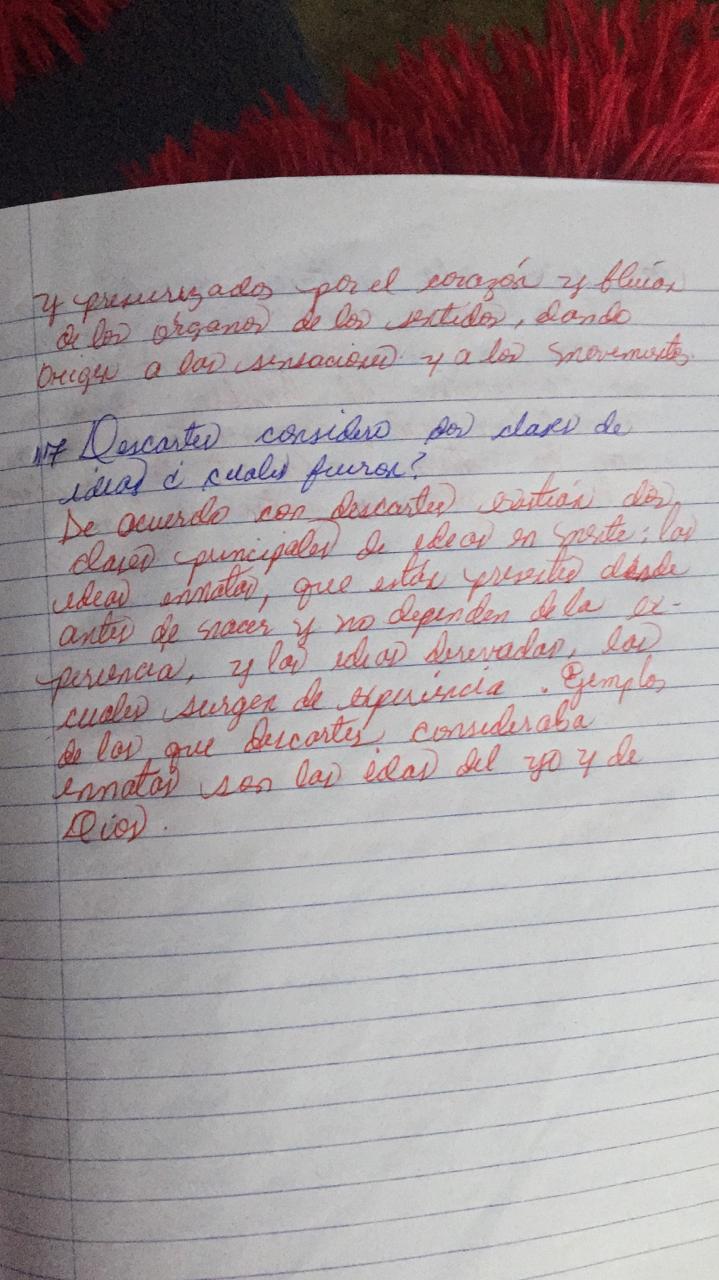 y presurizados por el corazón y fluían
de los órganos de los sentidos, dando
Origen a las sensaciones y a los movimientos.
17 Descartes considero dos clases de
ideas ¿ cuales fueron?
De acuerdo con descartes existían dos
clases principales de ideas en mente: las
ideas ennatas, que están presentes desde
antes de nacer y no dependen de la ex-
periencia, y las ideas derevadas, las
cuales surgen de experiencia. Ejemplos
de las que descartes consideraba
ennatas son las idas del yo y de
Dios.